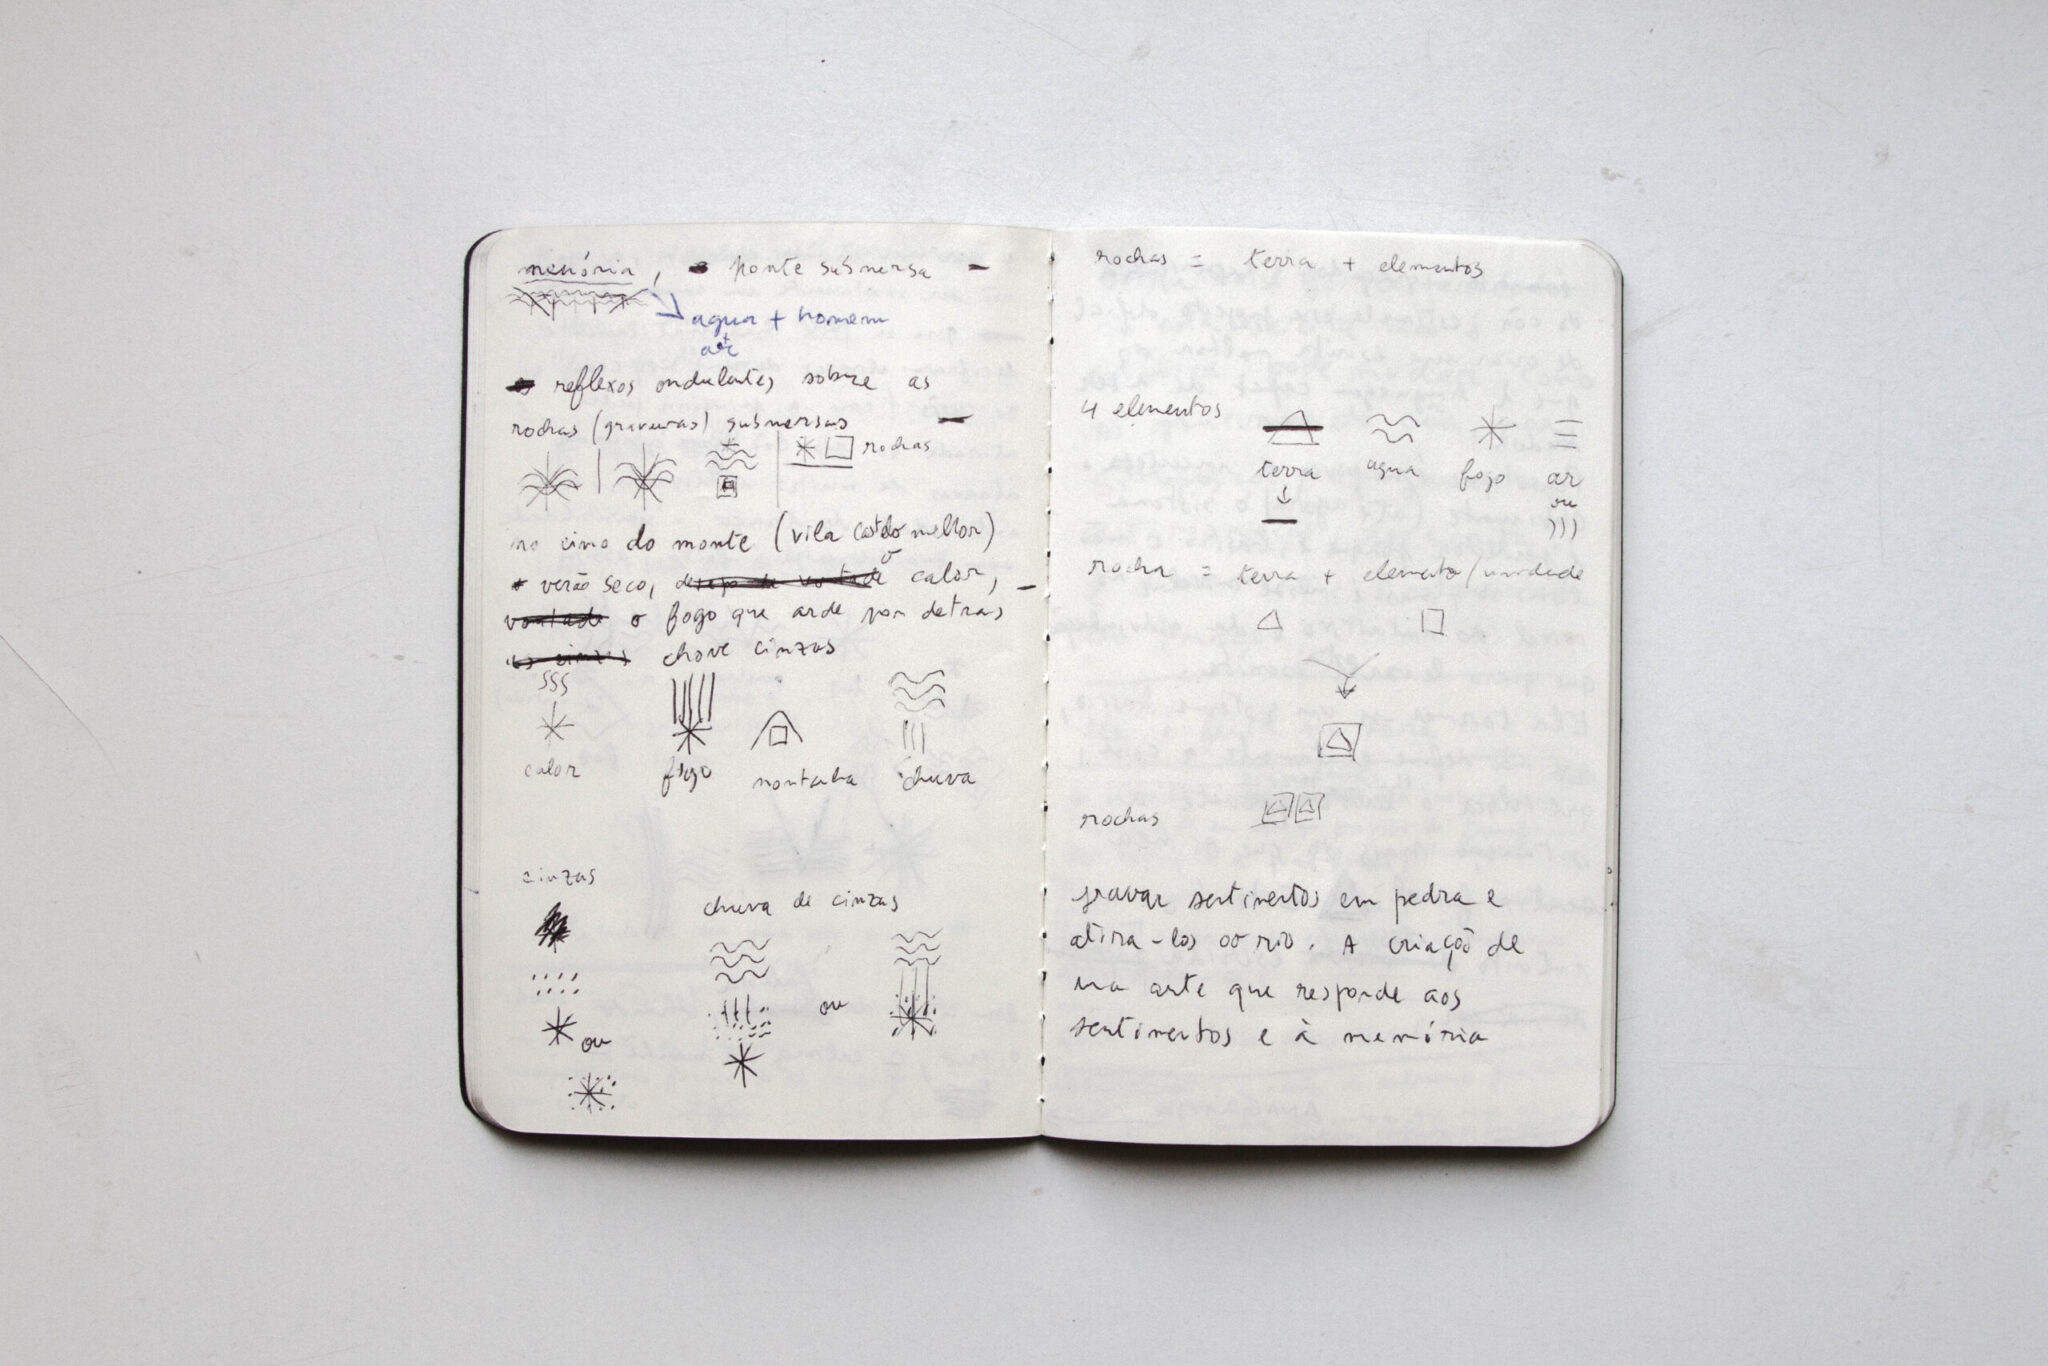 memória, ponte submersa -
agua + homem
reflexos ondulantes sobre as
rochas (gravuras) submersas -
rochas
no cimo do monte (vila castelo melhor)
verão seco, o calor, -
o fogo que arde por detras
chove cinzas
calor fogo montanha chuva
cinzas
chuva de cinzas
ou
ou
rochas = terra + elementos
4 elementos
terra agua fogo ar
ou
)))
rocha = terra + elemento/unidade
rochas
gravar sentimentos em pedra e
atira-los ao rio. A criação de
uma arte que responde aos
sentimentos e à memória